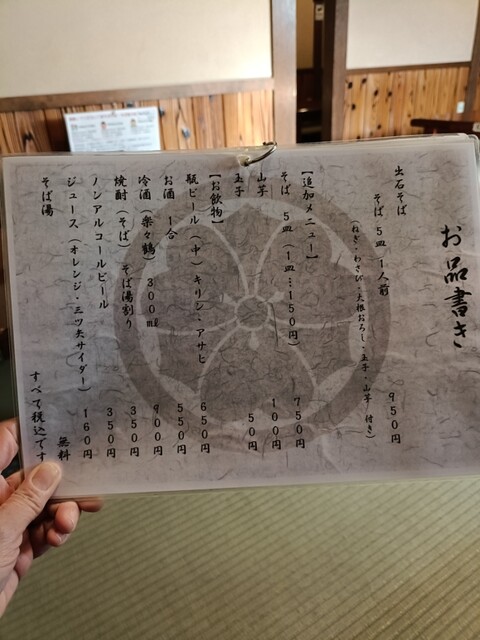 お品書き
出石そば
そば 5皿 1人前 950円
(ねぎ・わさび・大根おろし・玉子・山芋 付き)
【追加メニュー】
そば 5皿 (1皿…150円) 750円
山芋 100円
玉子 50円
【お飲物】
瓶ビール(中) キリン・アサヒ 650円
お酒 1合 550円
冷酒(楽々鶴) 300㎖ 900円
焼酎(そば) そば湯割り 350円
ノンアルコールビール 350円
ジュース(オレンジ・三ツ矢サイダー) 160円
そば湯 無料
すべて税込です